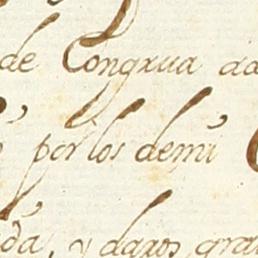 de Congrua da
por los demi
da, y dgxos, gra